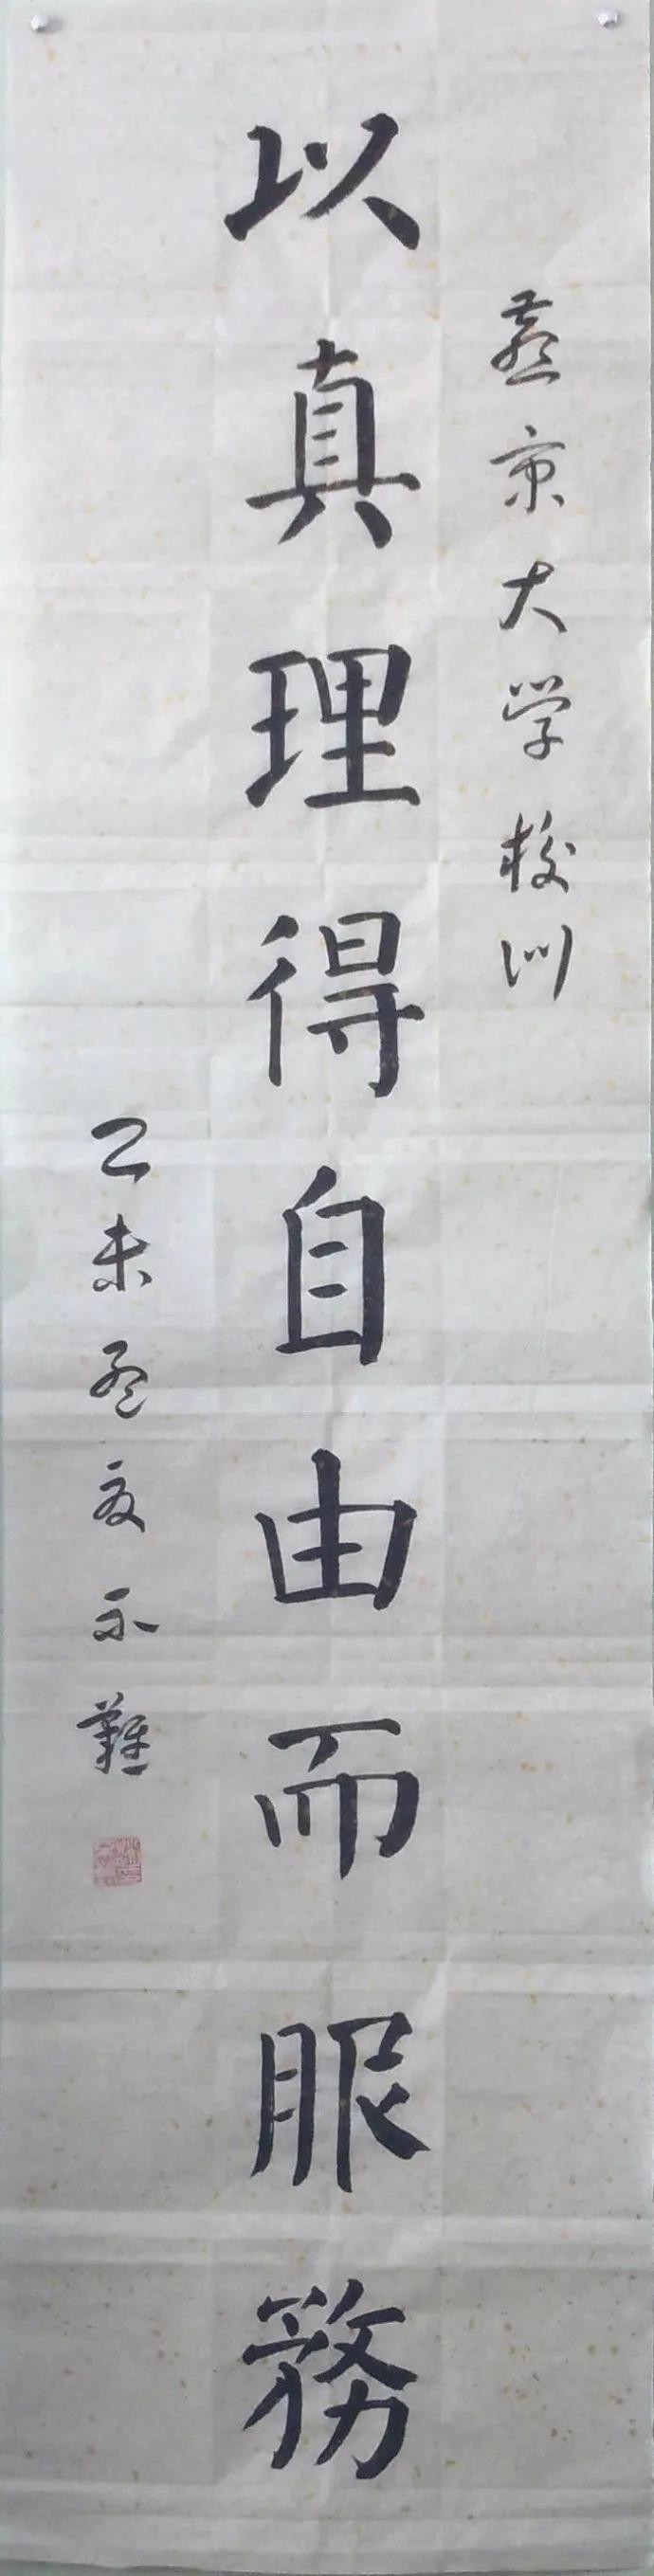 燕京大学校训
以真理得自由而服務
乙未孟夏不難